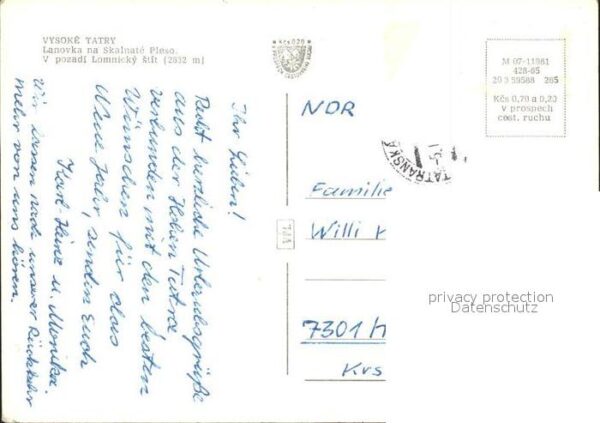 VYSOKÉ TATRY
Lanovka na Skalnaté Pleso.
V pozadí Lomnický štít (2632 m)
Kčs 0,20
M 07-11961
428-65
20 3 59588 265
Kčs 0,70 a 0,20
v prospech
cest. ruchu
TATRANSKÁ
Ihr Lieben!
Recht herzliche Urlaubsgrüße
aus der Hohen Tatra
verbunden mit den besten
Wünschen für das
Neue Jahr, senden Euch
Karl-Heinz u. Monika.
Wir lassen nach unserer Rückkehr
mehr von uns hören.
NDR
Familie
Willi
7301
Krs
privacy protection
Datenschutz